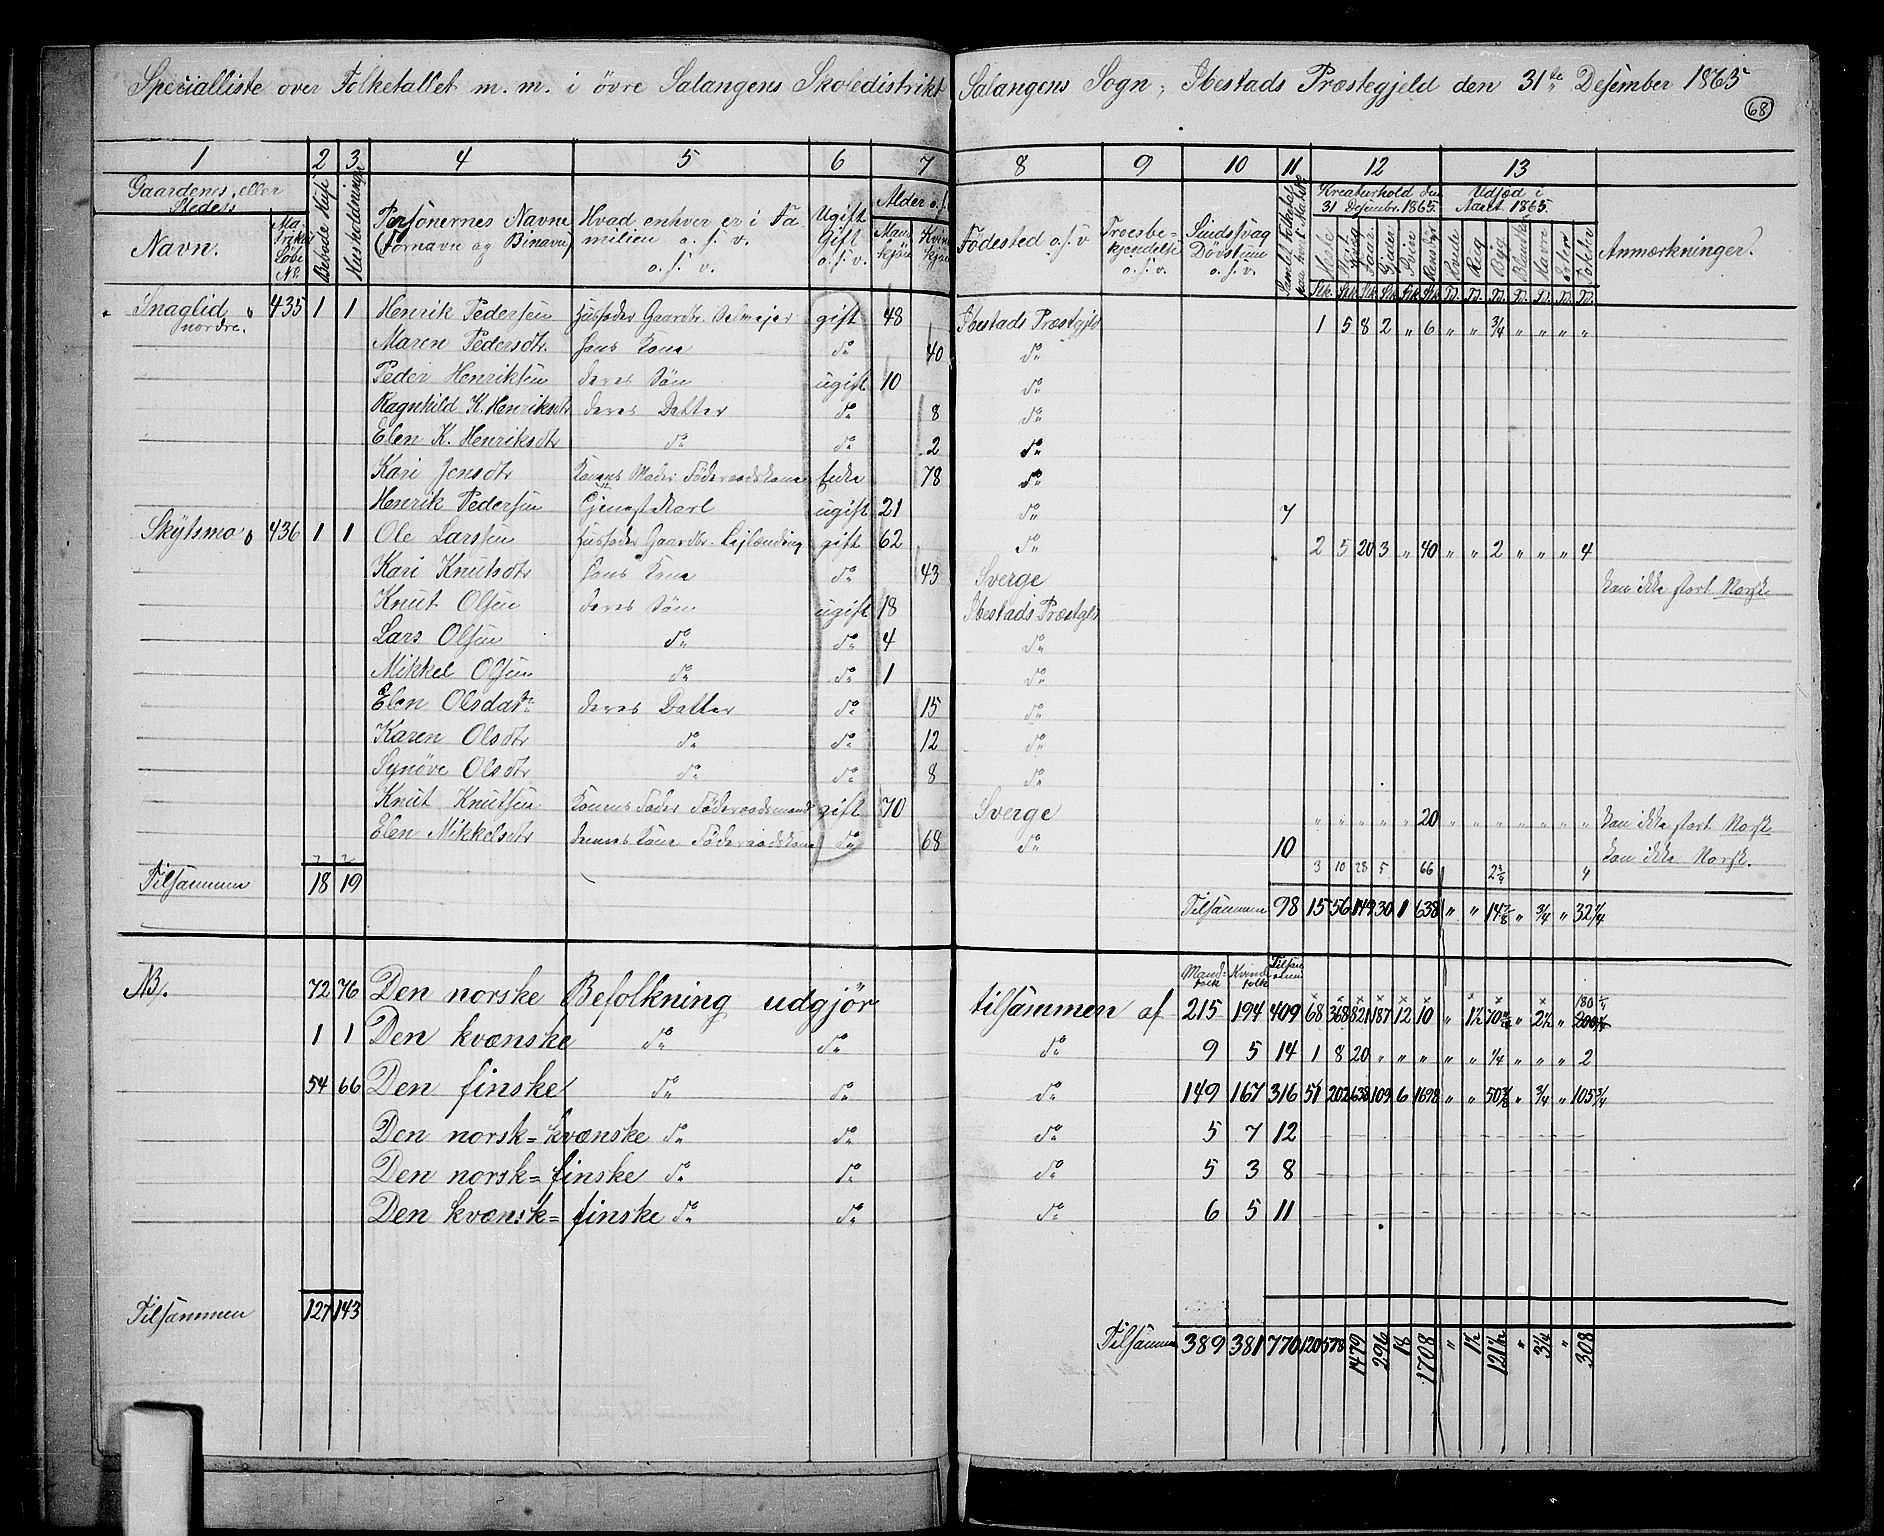 Specialliste over Folketallet m. m. i övre Salangens Skoledistrikt Salangens Sogn, Ibestads Præstegjeld den 31te Desember 1865
68
1 2 3 4 5 6 7 8 9 10 11 12 13
Gaardenes, eller Stedets
Navn.
Matrikul Løbe No.
Bebode Huse
Husholdninger
Personernes Navne (Fornavn og Binavn)
Hvad enhver er i Familien o. s. v.
Ugift Gift o. s. v.
Alder o. s.
Mans kjön
Kvin kjön
Födested o. s. v
Troesbekjendelse o. s. v.
Sindssvag Dövstum o. s. v.
Kreaturhold den 31 Desembr. 1865.
Udsæd i Aaret 1865.
Anmærkninger.
Heste Stort Kvæg Faar Gjeder Svin Rensdyr Hvede Rug Byg Blandk. Havre Erter Poteter
Stk. Stk. Stk. Stk. Stk. Stk. T. T. T. T. T. T. T.
Snaglid nordre. 435 1 1 Henrik Pedersen Husfader Gaardbr. Selvejer gift 48 Ibestads Præstgjld 1 5 8 2 " 6 " " 3/4 " " " "
Maren Pedersdtr. Hans Kone do 40 do
Peder Henriksen deres Sön ugift 10 do
Ragnhild K. Henriksdtr deres Datter do 8 do
Elen K. Henriksdtr do do 2 do
Kari Jensdtr Konens Moder Föderaadskone Enke 78 do
Henrik Pedersen Tjenestkarl ugift 21 do 7
Skytsmo 436 1 1 Ole Larssen Husfader Gaardbr. Lejlænding gift 62 do 2 5 20 3 " 40 " " 2 " " " 4
Kari Knutsdtr Hans Kone do 43 Sverge kan ikke stort Norsk
Knut Olsen deres Sön ugift 18 Ibestads Præstgjld
Lars Olsen do do 4 do
Mikkel Olsen do do 1 do
Elen Olsdatr deres Datter do 15 do
Karen Olsdtr do do 12 do
Synöve Olsdtr do do 8 do
Knut Knutsen Konens Fader Föderaadsmand gift 70 Sverge " " " " " 20 " " " " " " " kan ikke stort Norsk
Elen Mikkelsdtr hannes Kone Föderaadskone do 68 do 10 kan ikke Norsk.
2 2 3 10 28 5 66 2 3/4 4
Tilsammen 18 19 Tilsammen 98 15 56 149 30 1 638 " " 14 7/8 " 3/4 " 32 1/4
Mandfolk Kvindfolk Tilsammen
NB. 72 76 Den norske Befolkning udgjör tilsammen af 215 194 409 68 368 821 187 12 10 " 1 1/2 " 2 1/2 "
1 1 Den kvænske do do do 9 5 14 1 8 20 " " " " " 1/4 " " " 2
54 66 Den finske do do do 149 167 316 51 202 638 109 6 1698 " " 50 7/8 " 3/4 " 105 3/4
Den norsk=kvænske do do do 5 7 12
Den norsk=finske do do do 5 3 8
Den kvænsk=finske do do do 6 5 11
Tilsammen 127 143
Tilsammen 389 381 770 120 578 1479 296 18 1708 " 1 1/2 121 1/2 " 3 1/4 " 308